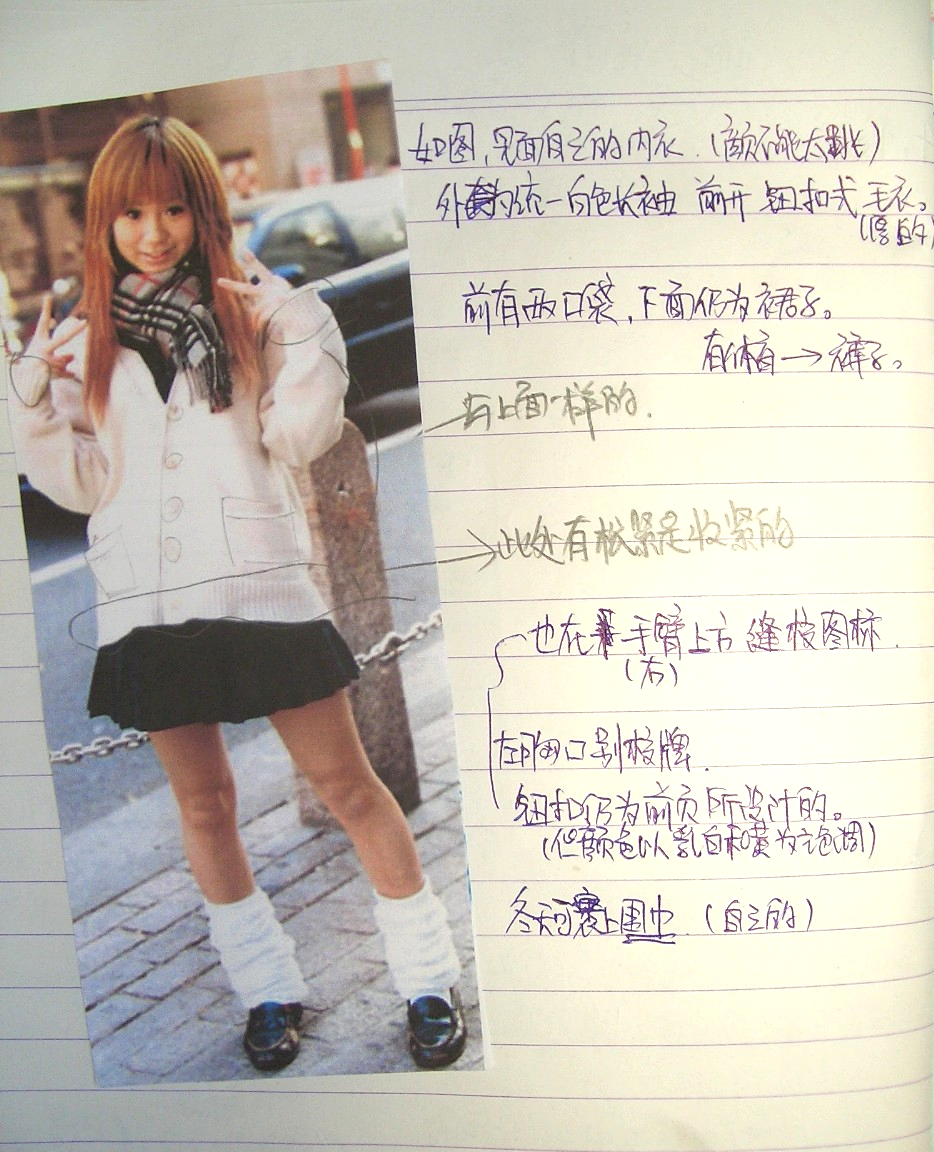 如图,里面自己的内衣.(颜不能太跳)
外套为统一白色长袖 前开 钮扣式 毛衣。
(厚的)
前有两口袋,下面仍为裙子。
有体育→裤子。
与上面一样的.
此处有松紧是收紧的
也在手臂上方 缝校图标.
(右)
左胸口别校牌.
钮扣仍为前页所设计的。
(但颜色以乳白和黄为主色调)
冬天可裹上围巾.(自己的)